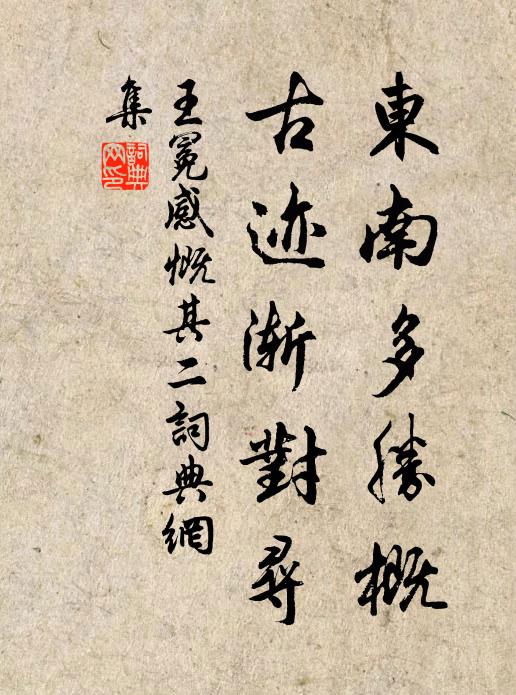 東南多勝概
古迹渐對尋
王冕感慨其二詞典網
集
詞典網印